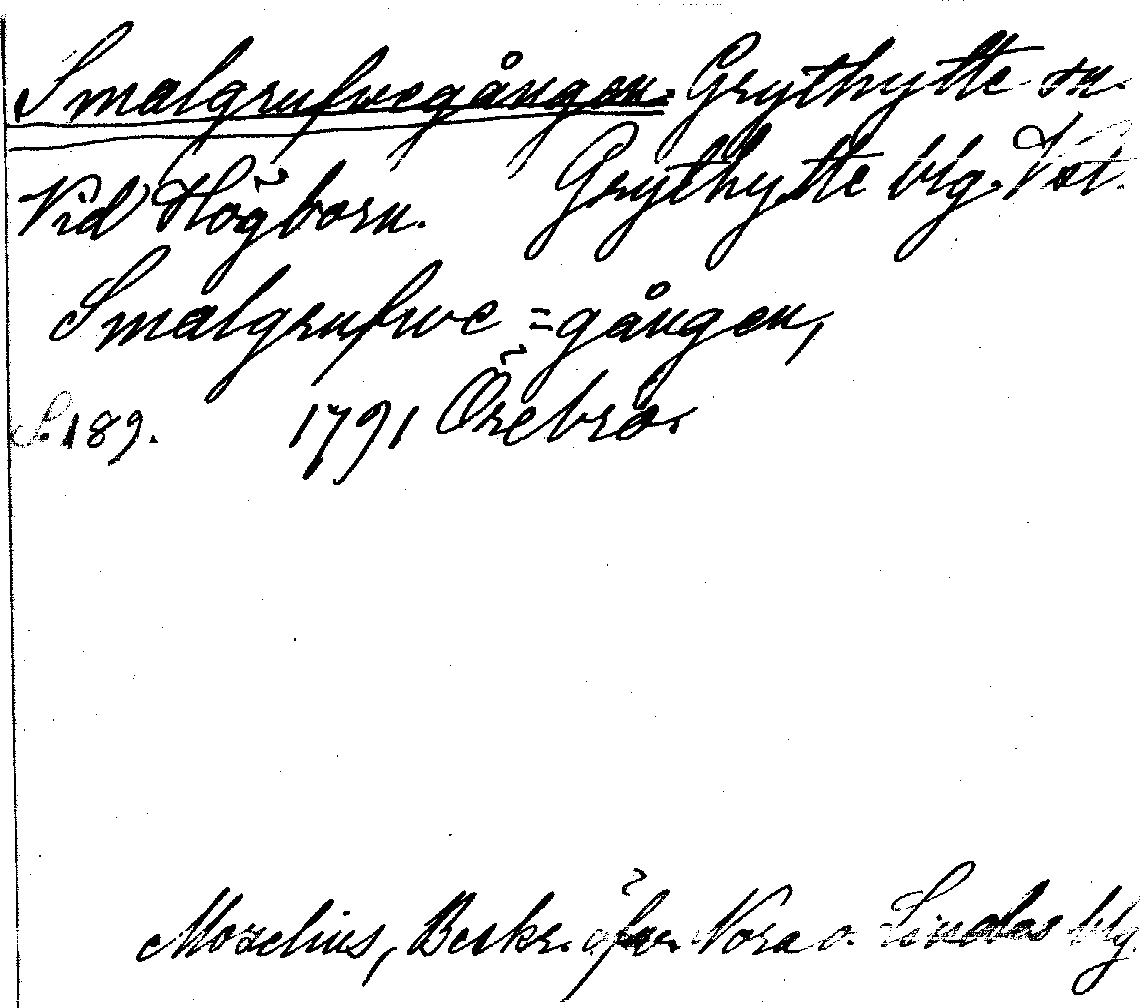 Smalgrufvegången. Grythytte sn.
Vid Högborn. Grythytte blg. Vstl.
Smalgrufwe=gången,
S. 189. 1791 Örebro.
Mozelius, Beskr. öfver Nora o. Lindes blg.